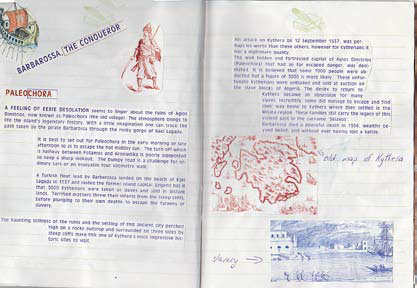 BARBAROSSA, THE CONQUEROR
PALEOCHORA
A FEELING OF EERIE DESOLATION seems to linger about the ruins of Agios
Dimitrios, now known as Paleochora (the old village). The steepsided
the the island's legendary history. With a little imagination one can trace the
path taken by the pirate Barbarossa through the rocky gorge of Kaki Lagada.
It is best to set out for Paleochora in the early morning or late
afternoon so as to escape the hot midday sun. The turn off which
is halfway between Potamos and Aroniadika is poorly signposted
so keep a sharp lookout. The bumpy road is a challenge for or-
dinary cars on an invariable four kilometre walk.
A Turkish fleet lead by Barbarossa landed on the beach of Kaki
Lagada in 1537 and looted the former island capital. Legend has it
that 5000 Kytherians were taken as slaves and sold in distant
lands. Terrified mothers threw their infants from the steep cliffs
before plunging to their own deaths to escape the tyranny of
slavery.
The haunting stillness of the ruins and the setting of this ancient city perched
high on a rocky outcrop and surrounded on three sides by
steep cliffs make this one of Kythera's most impressive his-
toric sites to visit.
his attack on Kythera on 12 September 1537, was per-
haps no worse than these others, however for Kytherians it
was a nightmare reality.
The well hidden and fortressed capital of Agios Dimitrios
(Paleochora) that had so far escaped danger, was demo-
lished. It is believed that some 7000 people were ab-
ducted but a figure of 5000 is more likely. These unfor-
tunate Kytherians were enslaved and sold at auction on
the slave blocks of Algeria. The desire to return to
Kythera became an obsession for many
slaves. Incredibly, some did manage to escape and find
their way home to Kythera where they settled in the
region. These families still carry the legacy of this
violent past in the surname
Barbarossa died a peaceful death in 1546, wealthy be-
yond belief, and without ever having lost a battle.
old map of Kythera
slavery